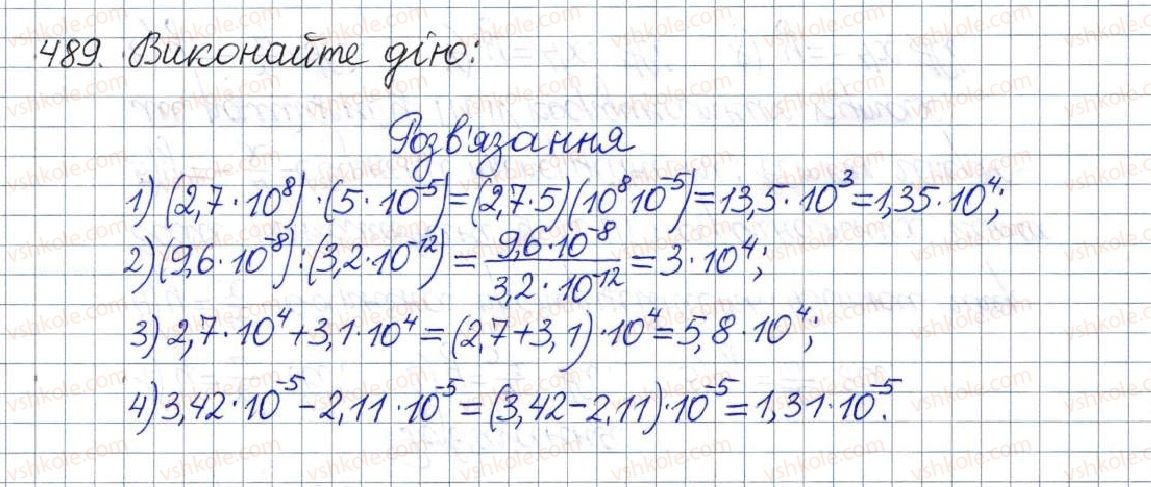 489. Виконайте дію:
Розв'язання
1) (2,7·10⁸)·(5·10⁻⁵)=(2,7·5)(10⁸10⁻⁵)=13,5·10³=1,35·10⁴;
2) (9,6·10⁻⁸):(3,2·10⁻¹²)=9,6·10⁻⁸/3,2·10⁻¹²=3·10⁴;
3) 2,7·10⁴+3,1·10⁴=(2,7+3,1)·10⁴=5,8·10⁴;
4) 3,42·10⁻⁵-2,11·10⁻⁵=(3,42-2,11)·10⁻⁵=1,31·10⁻⁵.